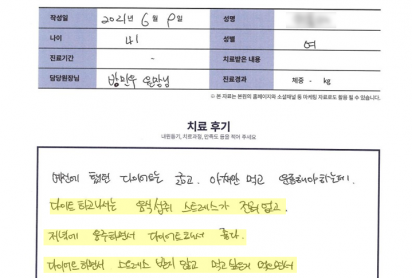 작성일 2021년 6월 9일 성명
나이 41 성별 여
진료기간 - 치료받은 내용
담당원장님 방민우 원장님 진료경과 체중 - kg
※ 본 자료는 본원의 홈페이지와 소셜채널 등 마케팅 자료로도 활용 될 수 있습니다.
치료 후기
내원동기, 치료과정, 만족도 등을 적어 주세요
예전에 했던 다이어트는 굶고. 아채만 먹고 운동해야하는데.
다이트 하고나서는 음식섭취 스트레스가 전혀 없고.
저녁에 음주하면서 다이어트되서 좋다.
다이어트하면서 스트레스 받지 않고 먹고 싶은거 먹으면서